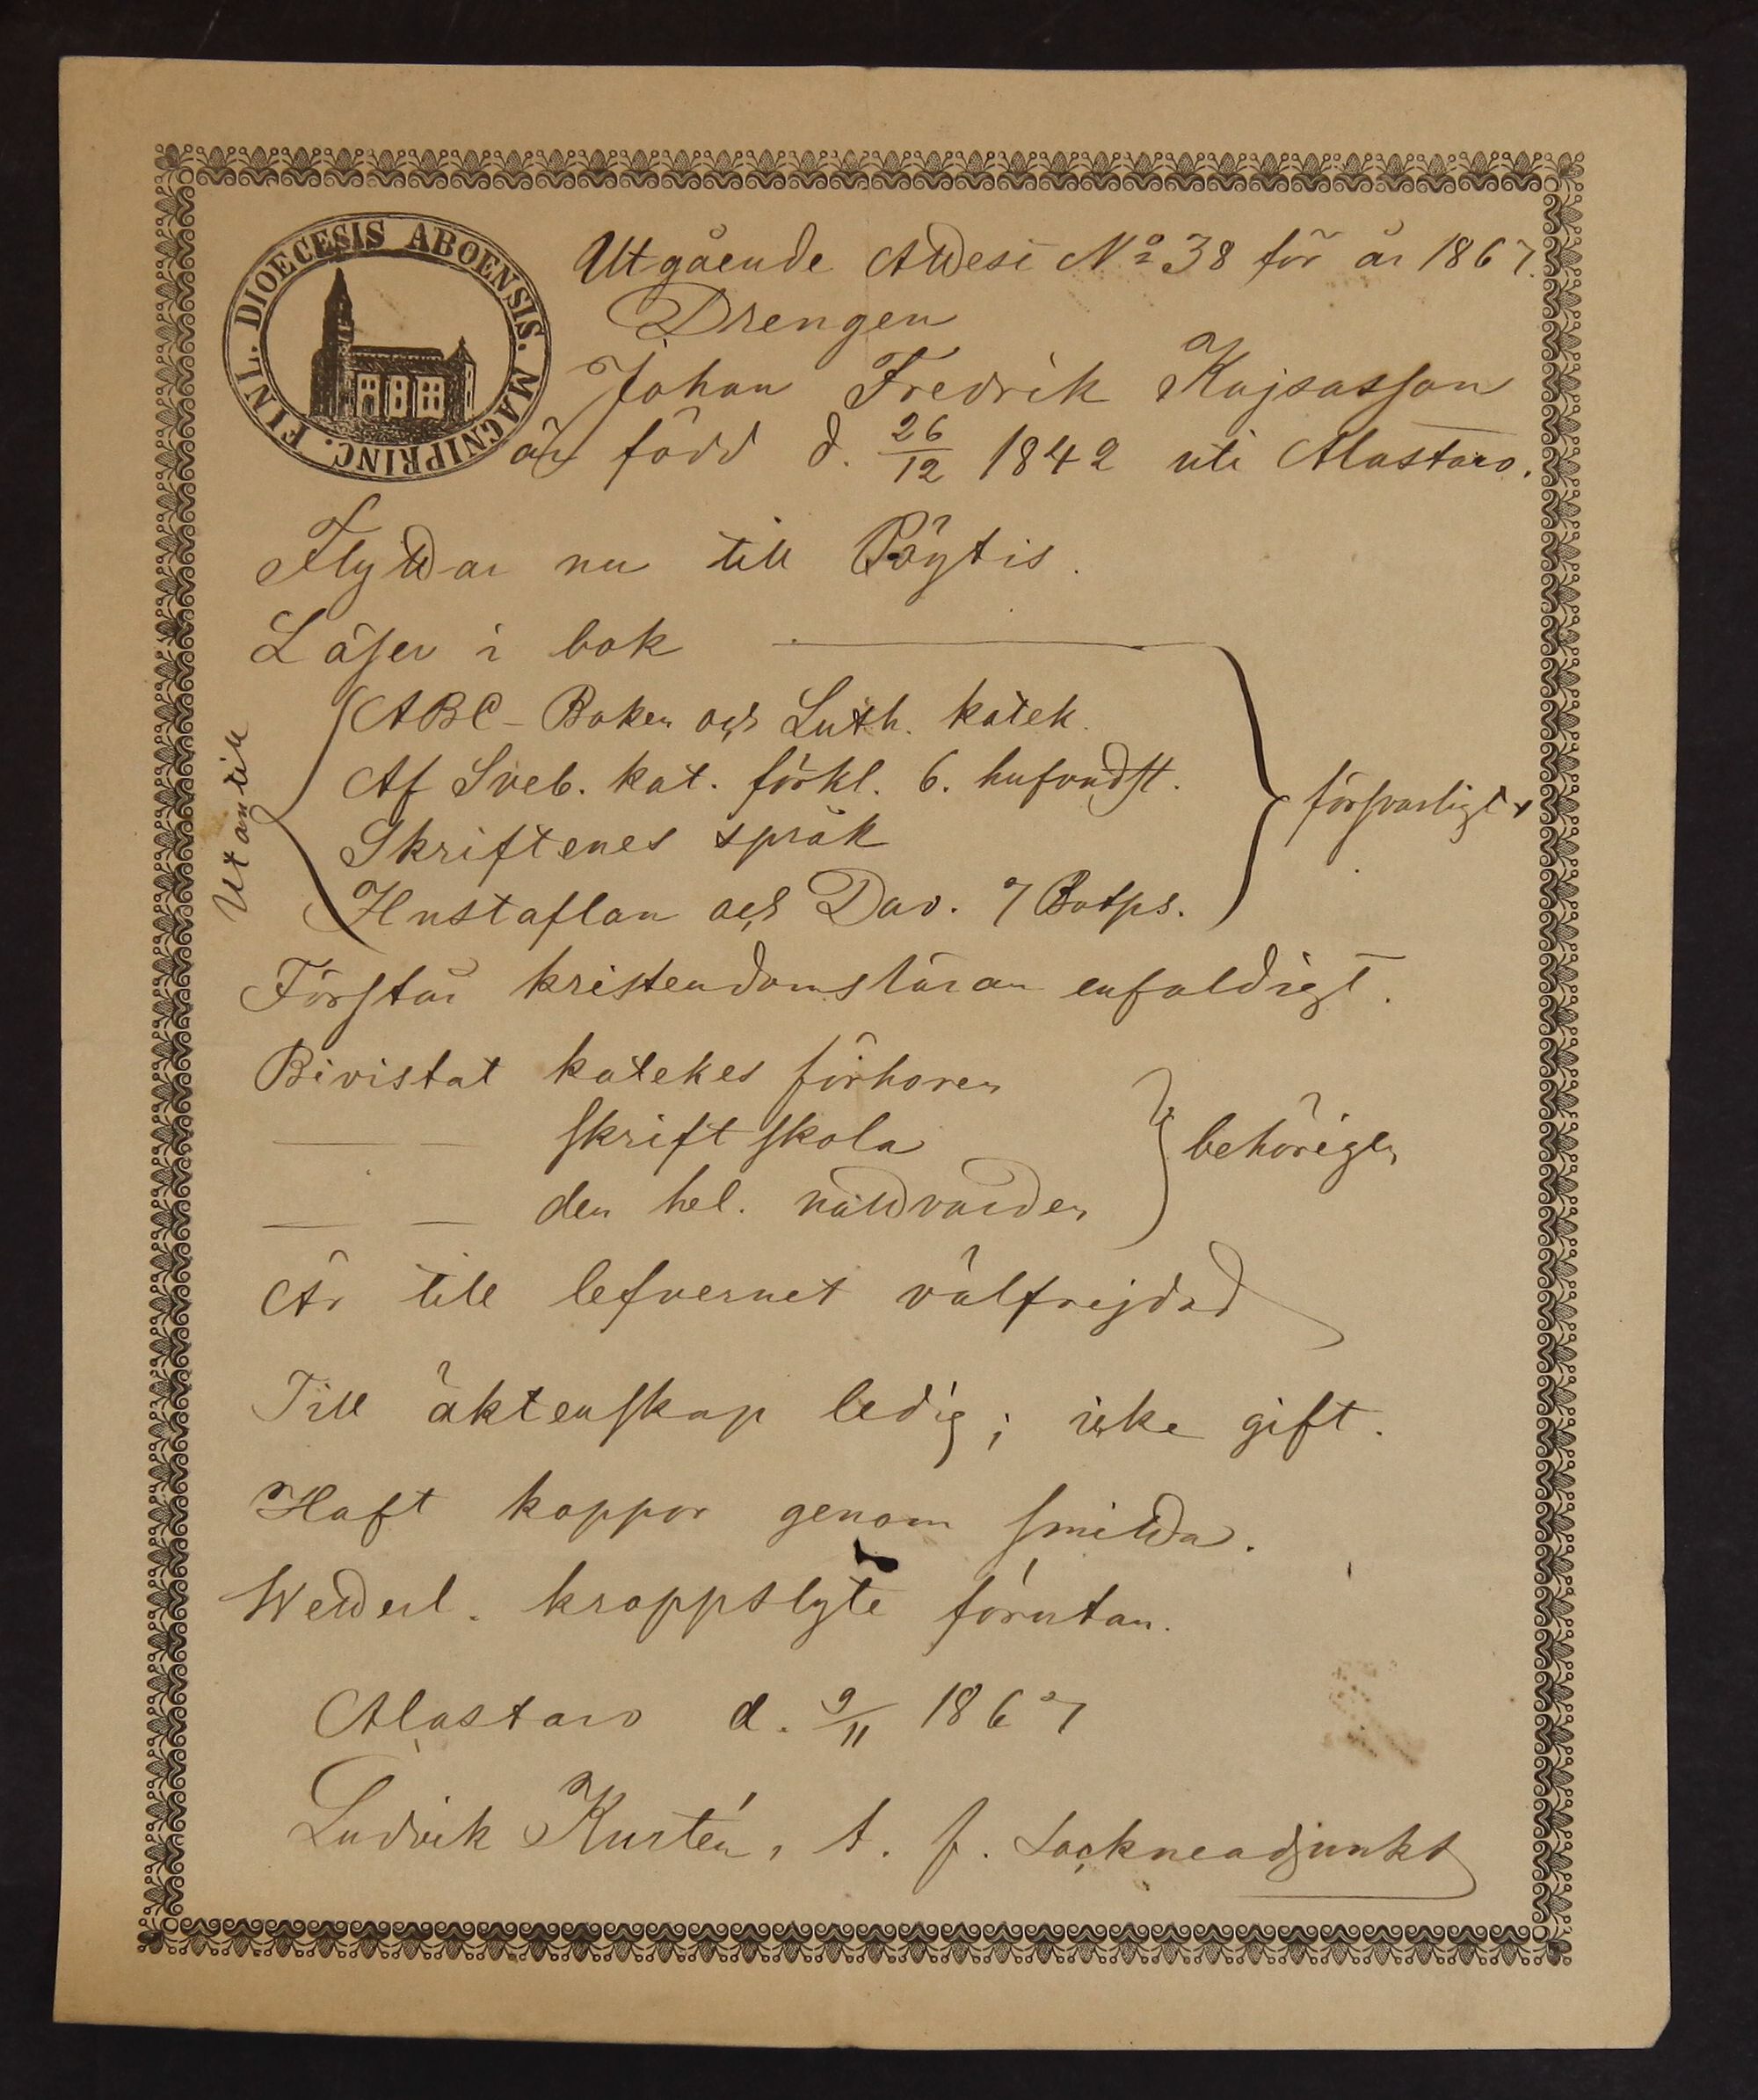 DIOECESIS ABOENSIS. MAGNIPRINC. FINL.
Utgående Attest No 38 för år 1867.
Drengen
Johan Fredrik Kajsasson
är född d. 26/12 1842 uti Alastaro.
Flyttar nu till Pöytis.
Läser i bok
Utantill
ABC-Boken och Luth. katek.
Af Sveb. kat. förkl. 6. hufvudst.
Skriftenes språk
Hustaflan och Dav. 7 Botps.
försvarligt
Förstår kristendomsläran enfaldigt.
Bivistat katekes förhören
— — skriftskola
— — den hel. nattvarden
behörigen
Är till lefvernet välfrejdad
Till äktenskap ledig; icke gift.
Haft koppor genom smitta.
Wetterl. kroppslyte förutan.
Alastaro d. 9/11 1867
Ludvik Kurtén, t. f. Sockneadjunkt